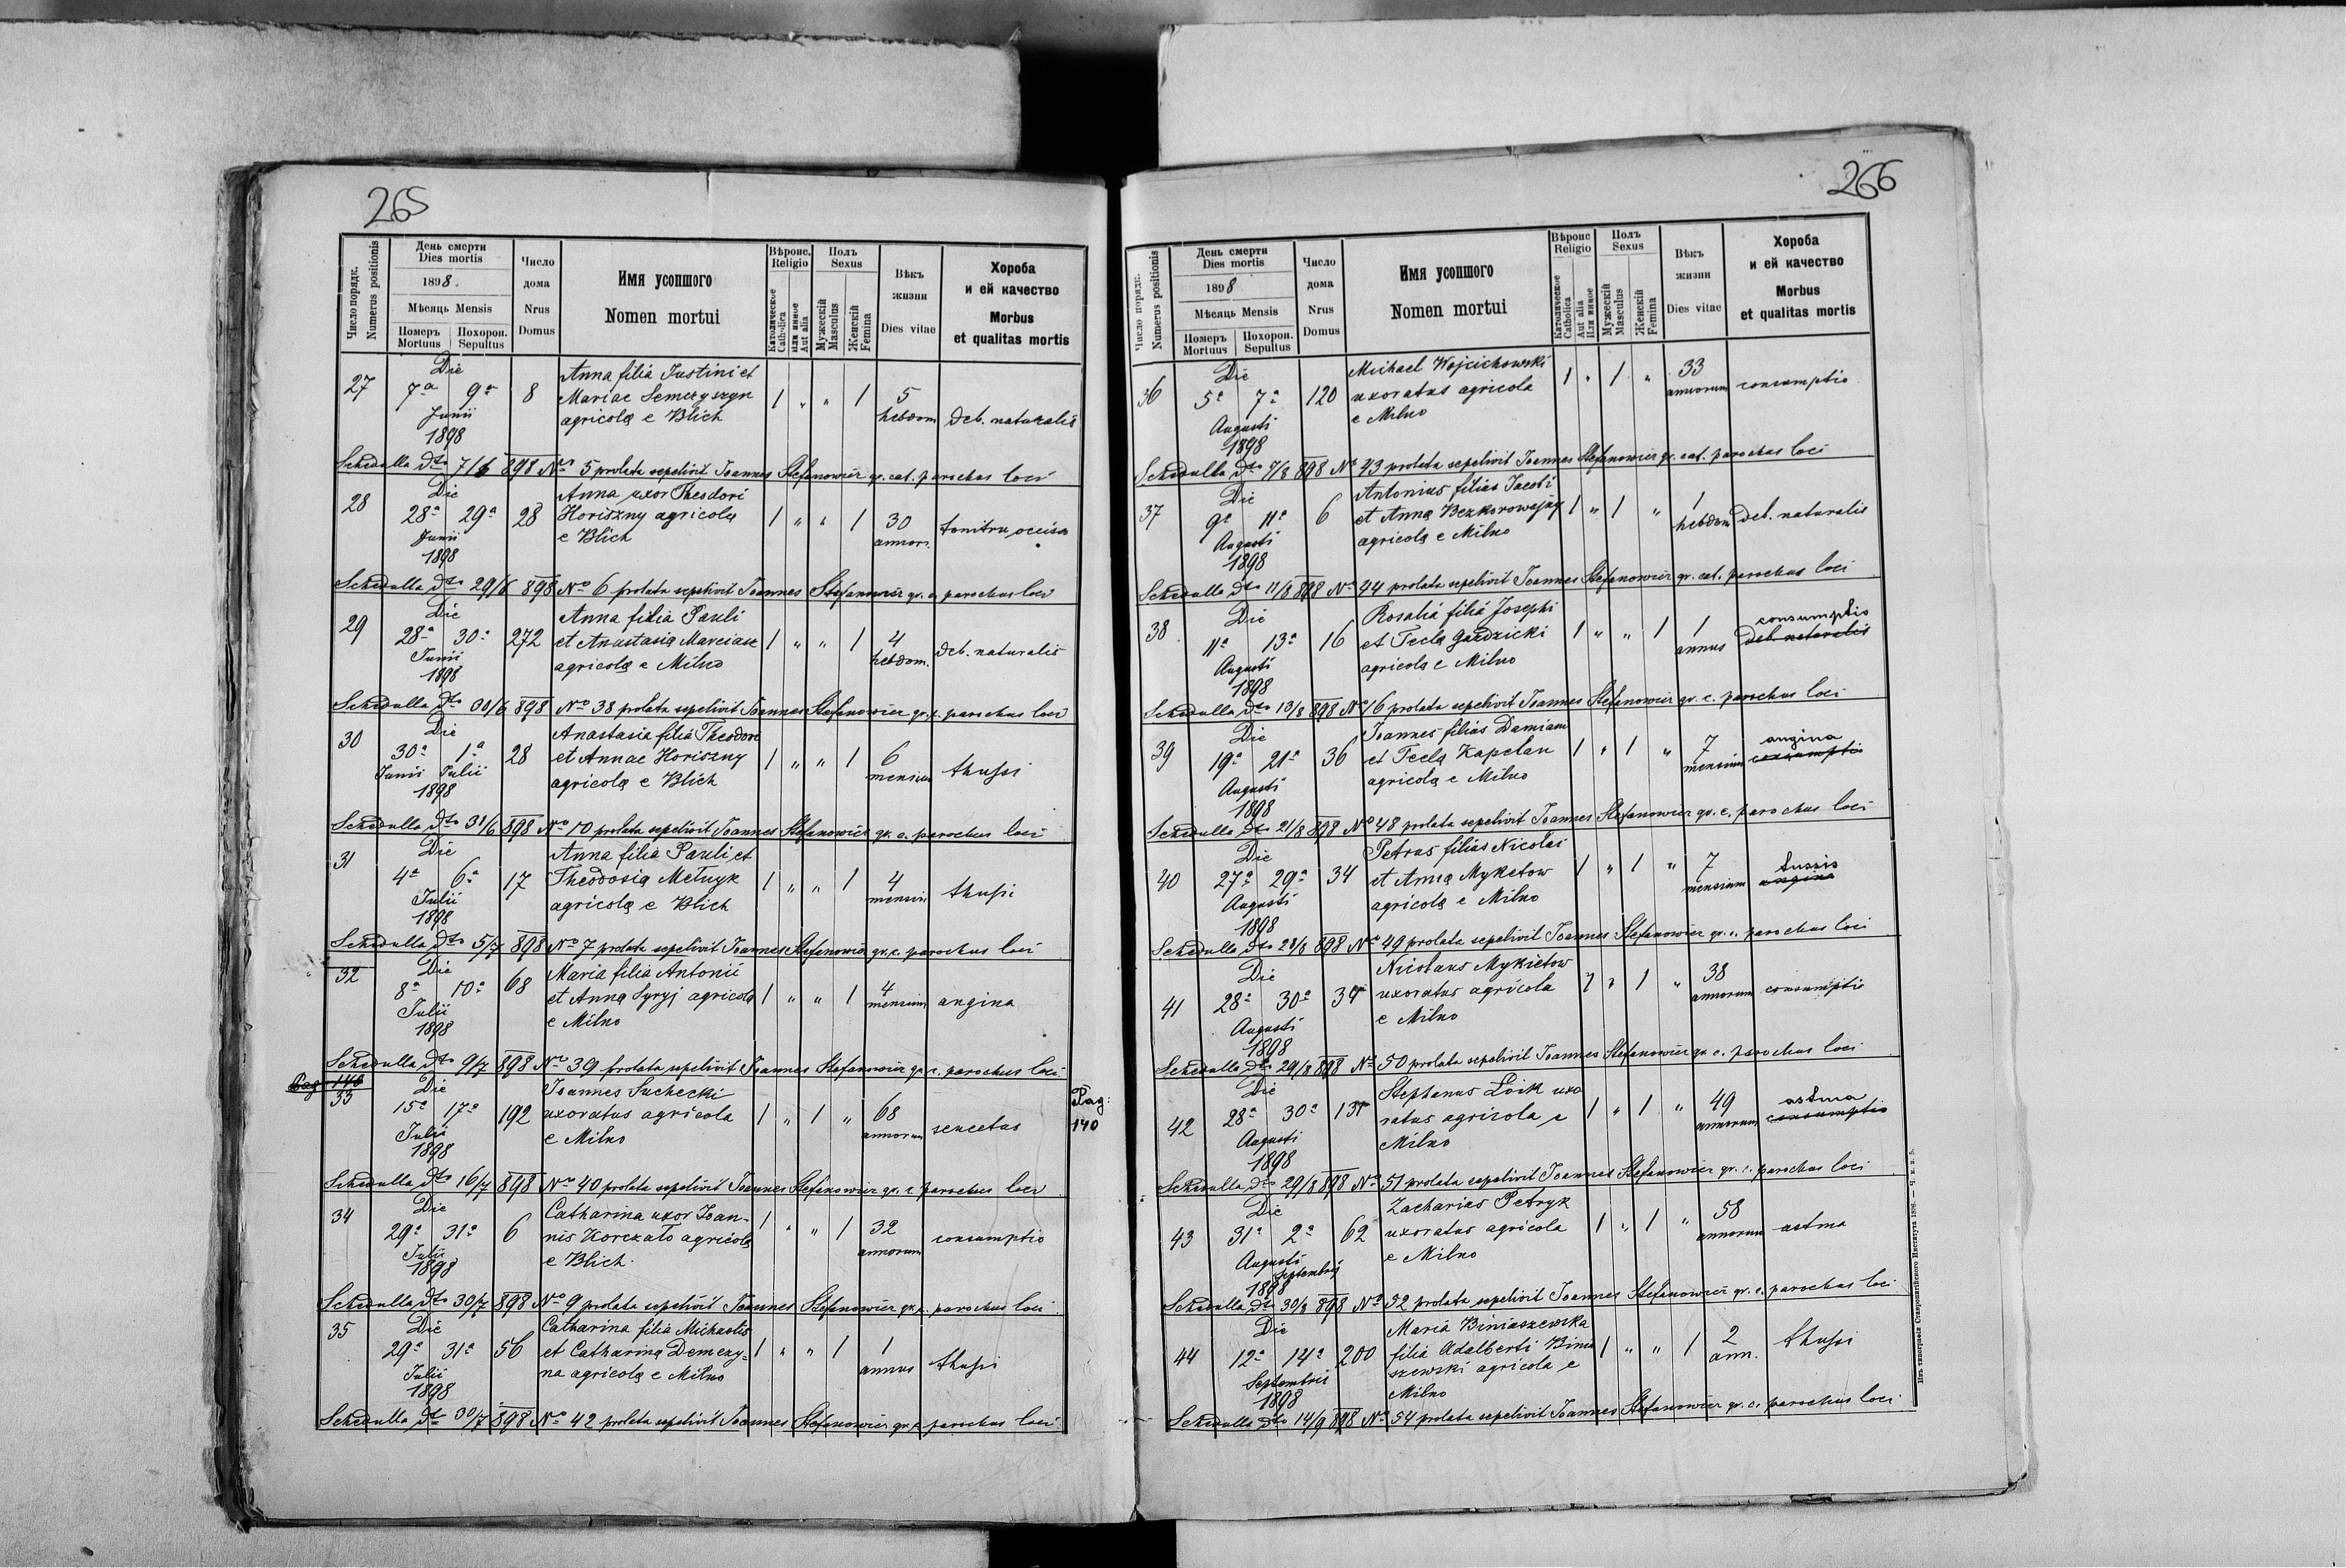 265
Число порядк. Numerus positionis
День смерти Dies mortis 1898.
Мѣсяць Mensis
Померъ Mortuus
Похорон. Sepultus
Число дома Nrus Domus
Имя усопшого Nomen mortui
Вѣроис. Religio
Католическое Catholica
Или инное Aut alia
Полъ Sexus
Мужескій Masculus
Женскій Femina
Вѣкъ жизни Dies vitae
Хороба и ей качество Morbus et qualitas mortis
Die
Anna filia Justini et
27 7ª 9ª 8 Mariae Semczyszyn 1 " " 1 5
Junii agricolą e Blich hebdom deb. naturalis
1898
Schedulla dto 7/6 898 Nro 5 prolata sepelivit Joannes Stefanowicz gr. cat. parochus loci
Die
28 Anna uxor Theodori
28ª 29ª 28 Horiszny agricolą 1 " " 1 30 tonitru occisa
Junii e Blich annor.
1898
Schedulla dto 29/6 898 Nro 6 prolata sepelivit Joannes Stefanowicz gr. c. parochus loci
Die
29 Anna filia Pauli
28ª 30ª 272 et Anastasią Marciasz 1 " " 1 4 deb. naturalis
Junii agricolą e Milno hebdom.
1898
Schedulla dto 30/6 898 Nro 38 prolata sepelivit Joannes Stefanowicz gr. c. parochus loci
Die
30 Anastasia filia Theodori
30ª 1ª 28 et Annae Horiszny 1 " " 1 6
Junii Julii agricolą e Blich mensium thussi
1898
Schedulla dto 31/6 898 Nro 10 prolata sepelivit Joannes Stefanowicz gr. c. parochus loci
Die
31 Anna filia Pauli et
4ª 6ª 17 Theodosią Melnyk 1 " " 1 4
Julii agricolą e Blich mensium thussi
1898
Schedulla dto 5/7 898 Nro 7 prolata sepelivit Joannes Stefanowicz gr. c. parochus loci
Die
32 Maria filia Antonii
8ª 10ª 68 et Anną Syryj agricolą 1 " " 1 4 mensium angina
Julii e Milno
1898
Schedulla dto 9/7 898 Nro 39 prolata sepelivit Joannes Stefanowicz gr. c. parochus loci
Pag 140
Die
33 Joannes Suchecki
15ª 17ª 192 uxoratus agricola 1 " 1 " 68
Julii e Milno annorum senectus
1898
Pag: 140
Schedulla dto 16/7 898 Nro 40 prolata sepelivit Joannes Stefanowicz gr. c. parochus loci
Die
34 Catharina uxor Joan-
29ª 31ª 6 nis Korczało agricolą 1 " " 1 32 consumptio
Julii e Blich. annorum
1898
Schedulla dto 30/7 898 Nro 9 prolata sepelivit Joannes Stefanowicz gr. c. parochus loci
Die
35 Catharina filia Michaelis
29ª 31ª 56 et Catharina Demczy- 1 " " 1 1
Julii na agricolą e Milno annus thussi
1898
Schedulla dto 30/7 898 Nro 42 prolata sepelivit Joannes Stefanowicz gr. c. parochus loci
266
Число порядк. Numerus positionis
День смерти Dies mortis 1898
Мѣсяць Mensis
Померъ Mortuus
Похорон. Sepultus
Число дома Nrus Domus
Имя усопшого Nomen mortui
Вѣроис Religio
Католическое Catholica
Aut alia Или инное
Полъ Sexus
Мужескій Masculus
Женскій Femina
Вѣкъ жизни Dies vitae
Хороба и ей качество Morbus et qualitas mortis
Die
Michael Wojcichowski
36 5ª 7ª 120 uxoratus agricola 1 " 1 " 33 annorum consumptio
Augusti e Milno
1898
Schedulla dto 7/8 898 Nro 43 prolata sepelivit Joannes Stefanowicz gr. cat. parochus loci
Die
Antonius filius Jacobi
37 9ª 11ª 6 et Anną Bezkorowajny 1 " 1 " 1 hebdom deb. naturalis
Augusti agricolą e Milno
1898
Schedulla dto 11/8 898 Nro 44 prolata sepelivit Joannes Stefanowicz gr. cat. parochus loci
Die
Rosalia filia Josephi consumptio
38 11ª 13ª 16 et Teclą Gardzicki 1 " " 1 1 annus deb. naturalis
Augusti agricolą e Milno
1898
Schedulla dto 13/8 898 Nro 46 prolata sepelivit Joannes Stefanowicz gr. c. parochus loci
Die
Joannes filius Damiani angina
39 19ª 21ª 36 et Teclą Kapelan 1 " 1 " 7 mensium consumptio
Augusti agricolą e Milno
1898
Schedulla dto 21/8 898 Nro 48 prolata sepelivit Joannes Stefanowicz gr. c. parochus loci
Die
Petrus filius Nicolai tussis
40 27ª 29ª 34 et Anną Myketow 1 " 1 " 7 mensium angina
Augusti agricolą e Milno
1898
Schedulla dto 28/8 898 Nro 49 prolata sepelivit Joannes Stefanowicz gr. c. parochus loci
Die
Nicolaus Mykietow
41 28ª 30ª 34 uxoratus agricola 1 " 1 " 38 annorum consumptio
Augusti e Milno
1898
Schedulla dto 29/8 898 Nro 50 prolata sepelivit Joannes Stefanowicz gr. c. parochus loci
Die
Stephanus Loik uxo astma
42 28ª 30ª ratus agricola e 1 " 1 " 49 annorum consumptio
Augusti Milno
1898
Schedulla dto 29/8 898 Nro 51 prolata sepelivit Joannes Stefanowicz gr. c. parochus loci
Die
Zacharias Petryk
43 31ª 2ª 62 uxoratus agricola 1 " 1 " 58 annorum astma
Augusti Septembris e Milno
1898
Schedulla dto 30/8 898 Nro 52 prolata sepelivit Joannes Stefanowicz gr. c. parochus loci
Die
Maria Biniaszewska
44 12ª 14ª 200 filia Adalberti Binia 1 " " 1 2 ann. thussi
Septembris szewski agricola e
1898 Milno
Schedulla dto 14/9 898 Nro 54 prolata sepelivit Joannes Stefanowicz gr. c. parochus loci
Изъ типографіи Ставропигійского Института 1896. — Ч. к. в. 5.